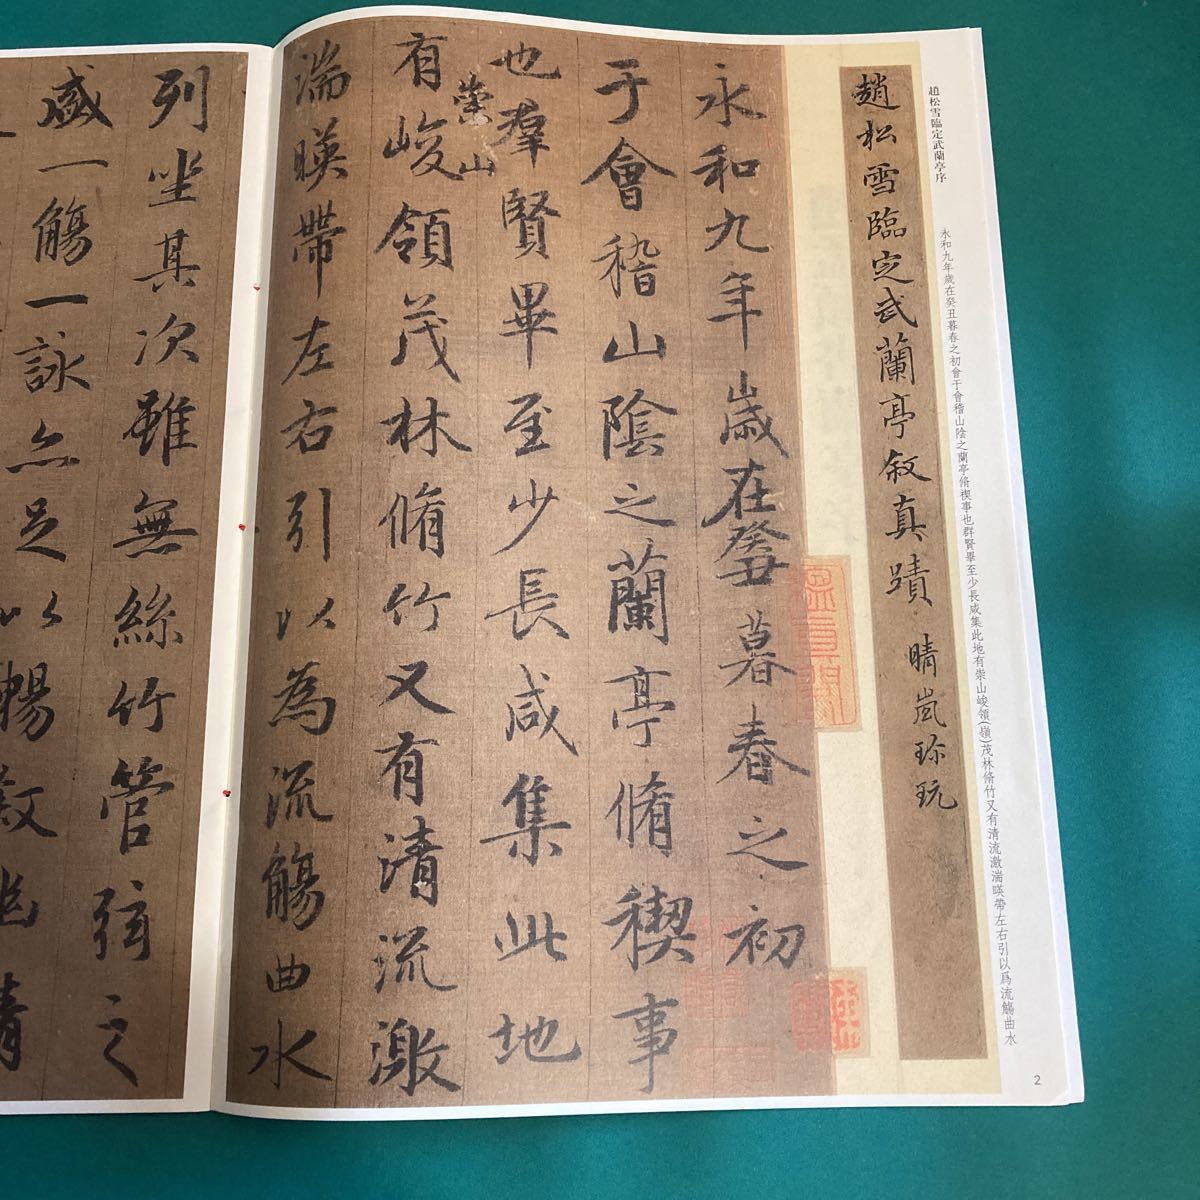 趙松雪臨定武蘭亭序
永和九年歲在癸丑暮春之初會于會稽山陰之蘭亭脩稧事也群賢畢至少長咸集此地有崇山峻領(嶺)茂林脩竹又有清流激湍暎帶左右引以爲流觴曲水
趙松雪臨定武蘭亭敘真蹟 晴嵐珎玩
永和九年歲在癸丑暮春之初
于會稽山陰之蘭亭脩稧事
也羣賢畢至少長咸集此地
崇山
有峻領茂林脩竹又有清流激
湍暎帶左右引以為流觴曲水
列坐其次雖無絲竹管弦之
盛一觴一詠亦足以暢敘幽情
2